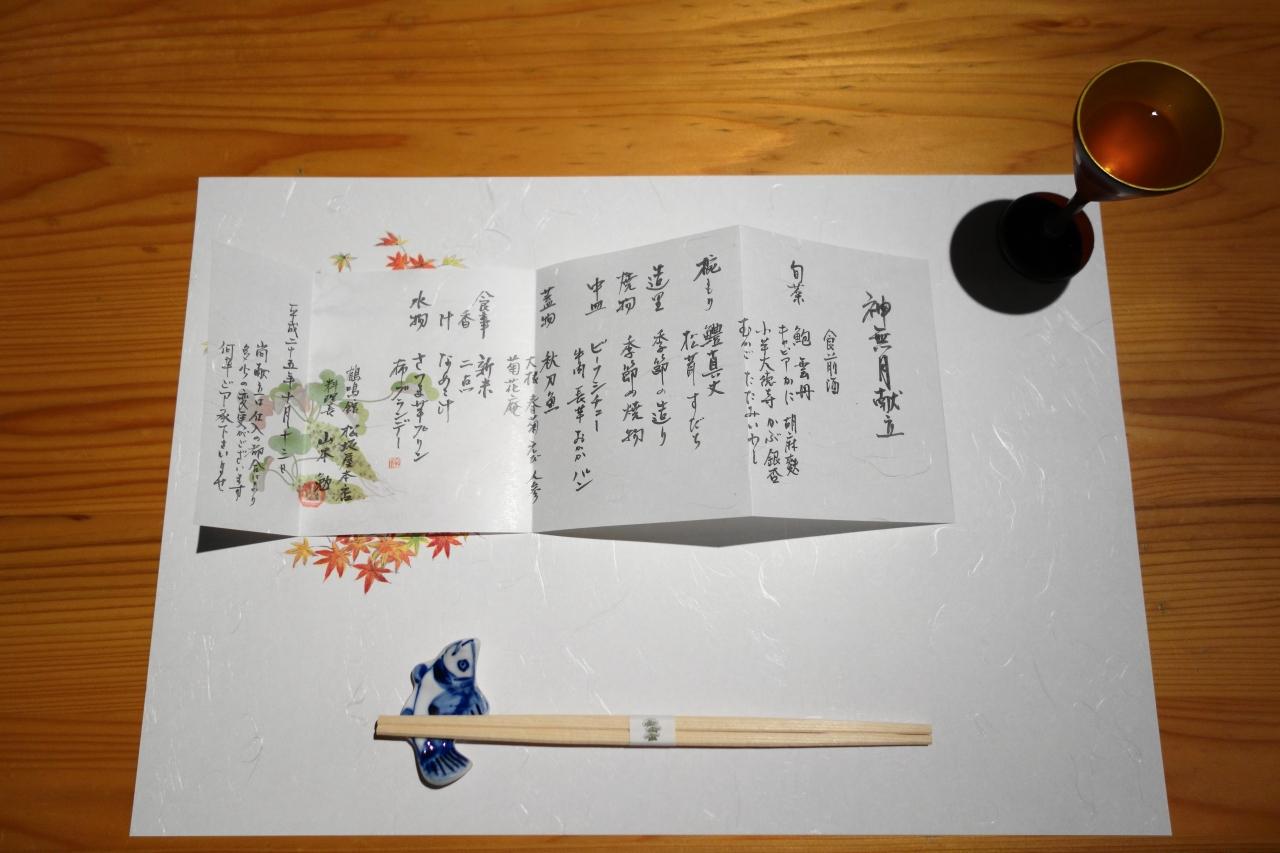 神無月献立
食前酒
旬菜 鮑 雲丹 胡麻麩
キャビア かに
小芋 大徳寺 かぶ 銀杏
むかご たたみいわし
椀もり 鱧真丈
松茸 すだち
造里 季節の造り
焼物 季節の焼物
中皿 ビーフシチュー
牛肉 長芋 おかか パン
蓋物 秋刀魚
大根 春菊 人参
菊花庵
食事 新米
香 二点
汁 なめこ汁
水物 さつま芋プリン
布ブランデー
鶴鳴館 松坂屋本店
料理長 山本 勉
平成二十五年十月十三日
尚献立は仕入の都合により
多少の変更がございます
何卒ご了承下さいませ